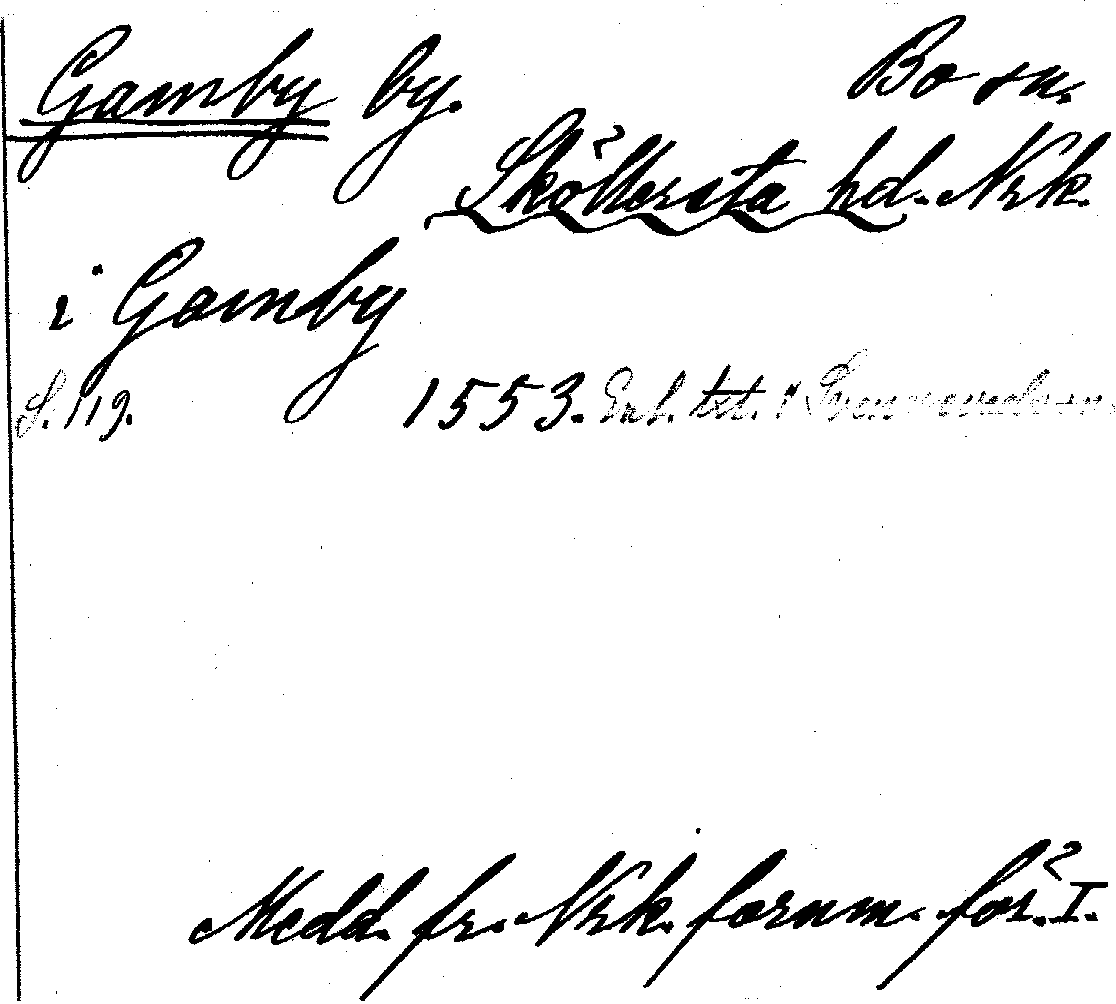 Gamby by. Bo sn.
Sköllersta hd. Nrk.
i Gamby
S. 119. 1553. Enl.
Medd. fr. Nrk. fornm. för. I.